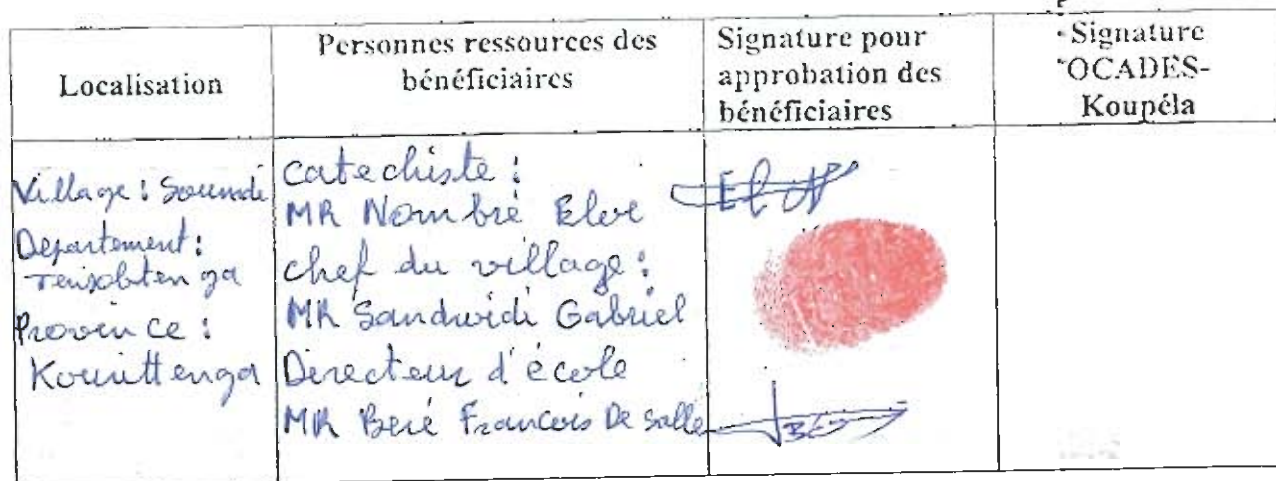 Localisation
Personnes ressources des
bénéficiaires
Signature pour
approbation des
bénéficiaires
Signature
OCADES-
Koupéla
Village : Soumdi
Departement :
Tensobtenga
Province :
Kourittenga
catechiste :
MR Nombré Eloi
chef du village :
MR Sandwidi Gabriel
Directeur d'école
MR Beré Francois De Salle